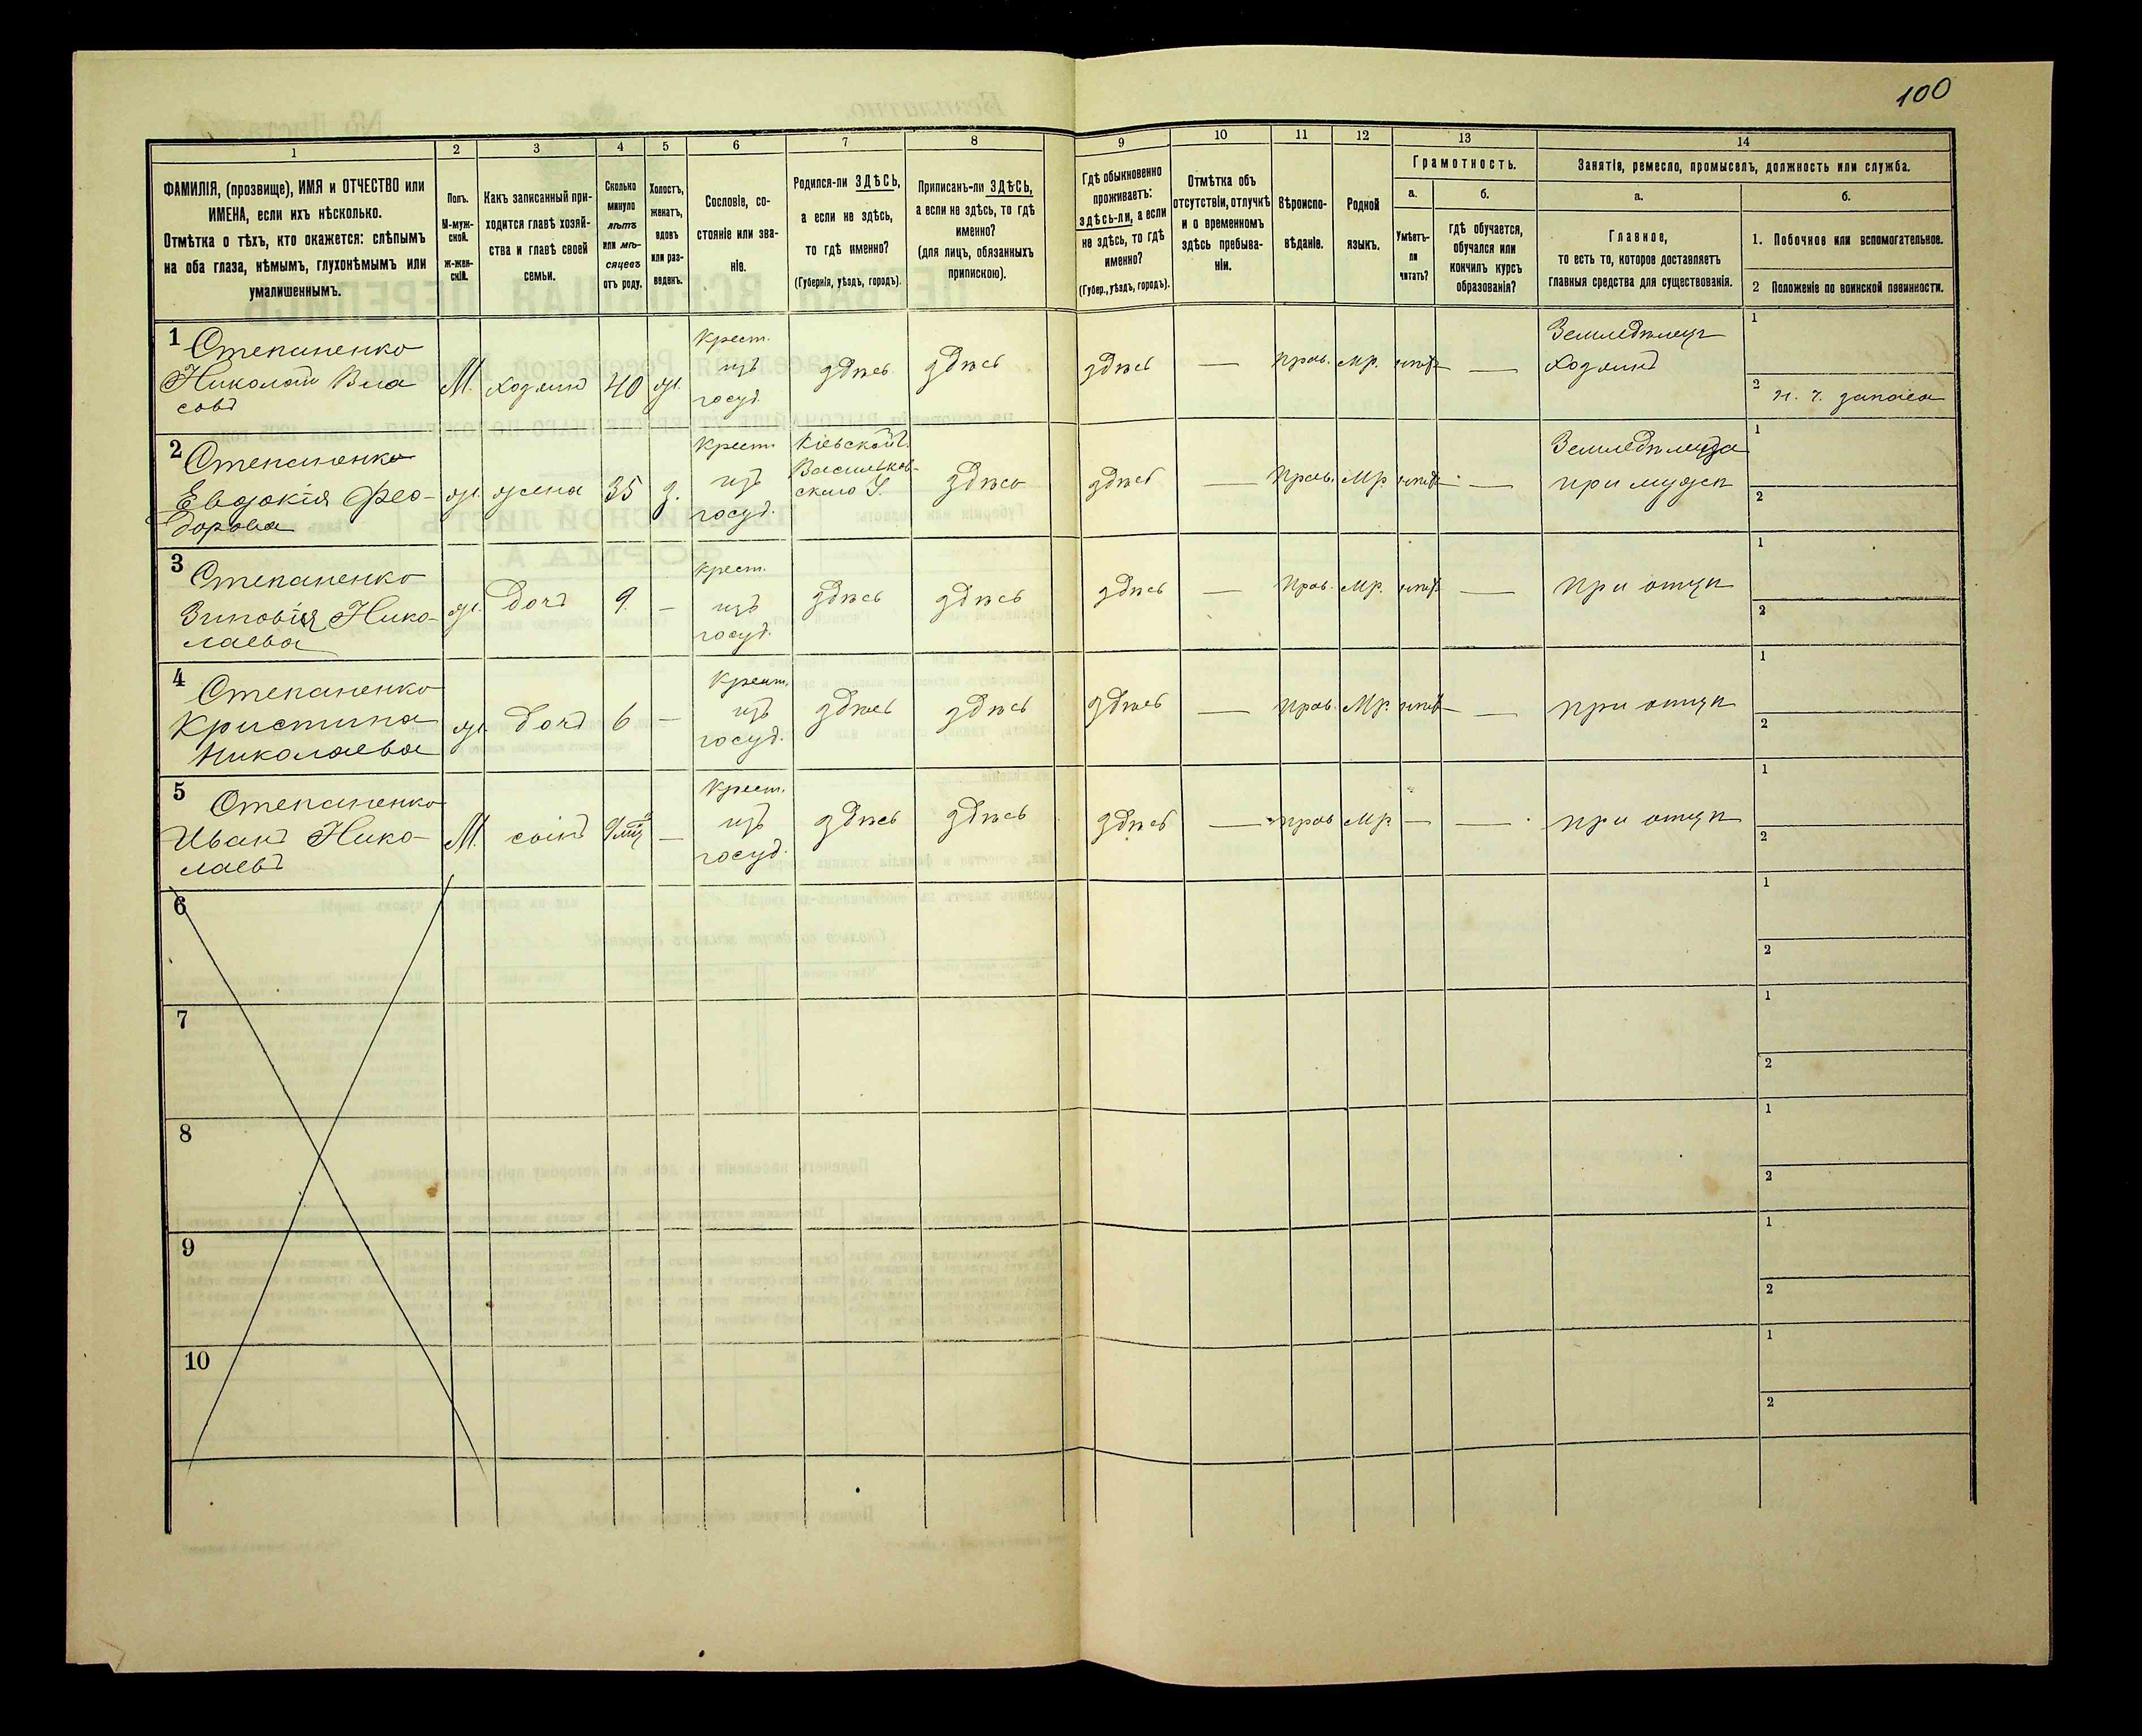 100
1
2
3
4
5
6
7
8
9
10
11
12
13
14
ФАМИЛІЯ, (прозвище), ИМЯ и ОТЧЕСТВО или
ИМЕНА, если ихъ нѣсколько.
Отмѣтка о тѣхъ, кто окажется: слѣпымъ
на оба глаза, нѣмымъ, глухонѣмымъ или
умалишеннымъ.
Полъ.
М-муж-
ской.
ж-жен-
скій.
Какъ записанный при-
ходится главѣ хозяй-
ства и главѣ своей
семьи.
Сколько
минуло
лѣтъ
или мѣ-
сяцевъ
отъ роду.
Холостъ,
женатъ,
вдовъ
или раз-
веденъ.
Сословіе, со-
стояніе или зва-
ніе.
Родился-ли ЗДѢСЬ,
а если не здѣсь,
то гдѣ именно?
(Губернія, уѣздъ, городъ).
Приписанъ-ли ЗДѢСЬ,
а если не здѣсь, то гдѣ
именно?
(для лицъ, обязанныхъ
припискою).
Гдѣ обыкновенно
проживаетъ:
здѣсь-ли, а если
не здѣсь, то гдѣ
именно?
(Губер., уѣздъ, городъ).
Отмѣтка объ
отсутствіи, отлучкѣ
и о временномъ
здѣсь пребыва-
ніи.
Вѣроиспо-
вѣданіе.
Родной
языкъ.
Грамотность.
а.
б.
Умѣетъ-
ли
читать?
гдѣ обучается,
обучался или
кончилъ курсъ
образованія?
Занятія, ремесло, промыселъ, должность или служба.
а.
б.
Главное,
то есть то, которое доставляетъ
главныя средства для существованія.
1. Побочное или вспомогательное.
2 Положеніе по воинской повинности.
1 Степаненко
Николай Вла
совъ
М.
хозяинъ
40
ж.
Крест.
изъ
госуд.
здѣсь
здѣсь
здѣсь
—
прав.
мр.
нѣтъ
—
Земледѣлецъ
хозяинъ
1
2 н. ч. запаса
2 Степаненко
Евдокія Фео-
дорова
ж.
жена
35
з.
Крест.
изъ
госуд.
Кіевской Г.
Васильков-
скаго У.
здѣсь
здѣсь
—
Прав.
Мр
нѣтъ
—
Земледѣлица
при мужѣ
1
2
3 Степаненко
Зиновія Нико-
лаева
ж.
дочь
9.
—
крест.
изъ
госуд.
здѣсь
здѣсь
здѣсь
—
Прав.
Мр.
нѣтъ
—
при отцѣ
1
2
4 Степаненко
Кристина
Николаева
ж.
дочь
6
—
Крест.
изъ
госуд.
здѣсь
здѣсь
здѣсь
—
прав.
Мр.
нѣтъ
—
при отцѣ
1
2
5 Степаненко
Иванъ Нико-
лаевъ
М.
сынъ
—
Крест.
изъ
госуд.
здѣсь
здѣсь
здѣсь
—
прав
Мр
—
—
при отцѣ
1
2
6
1
2
7
1
2
8
1
2
9
1
2
10
1
2